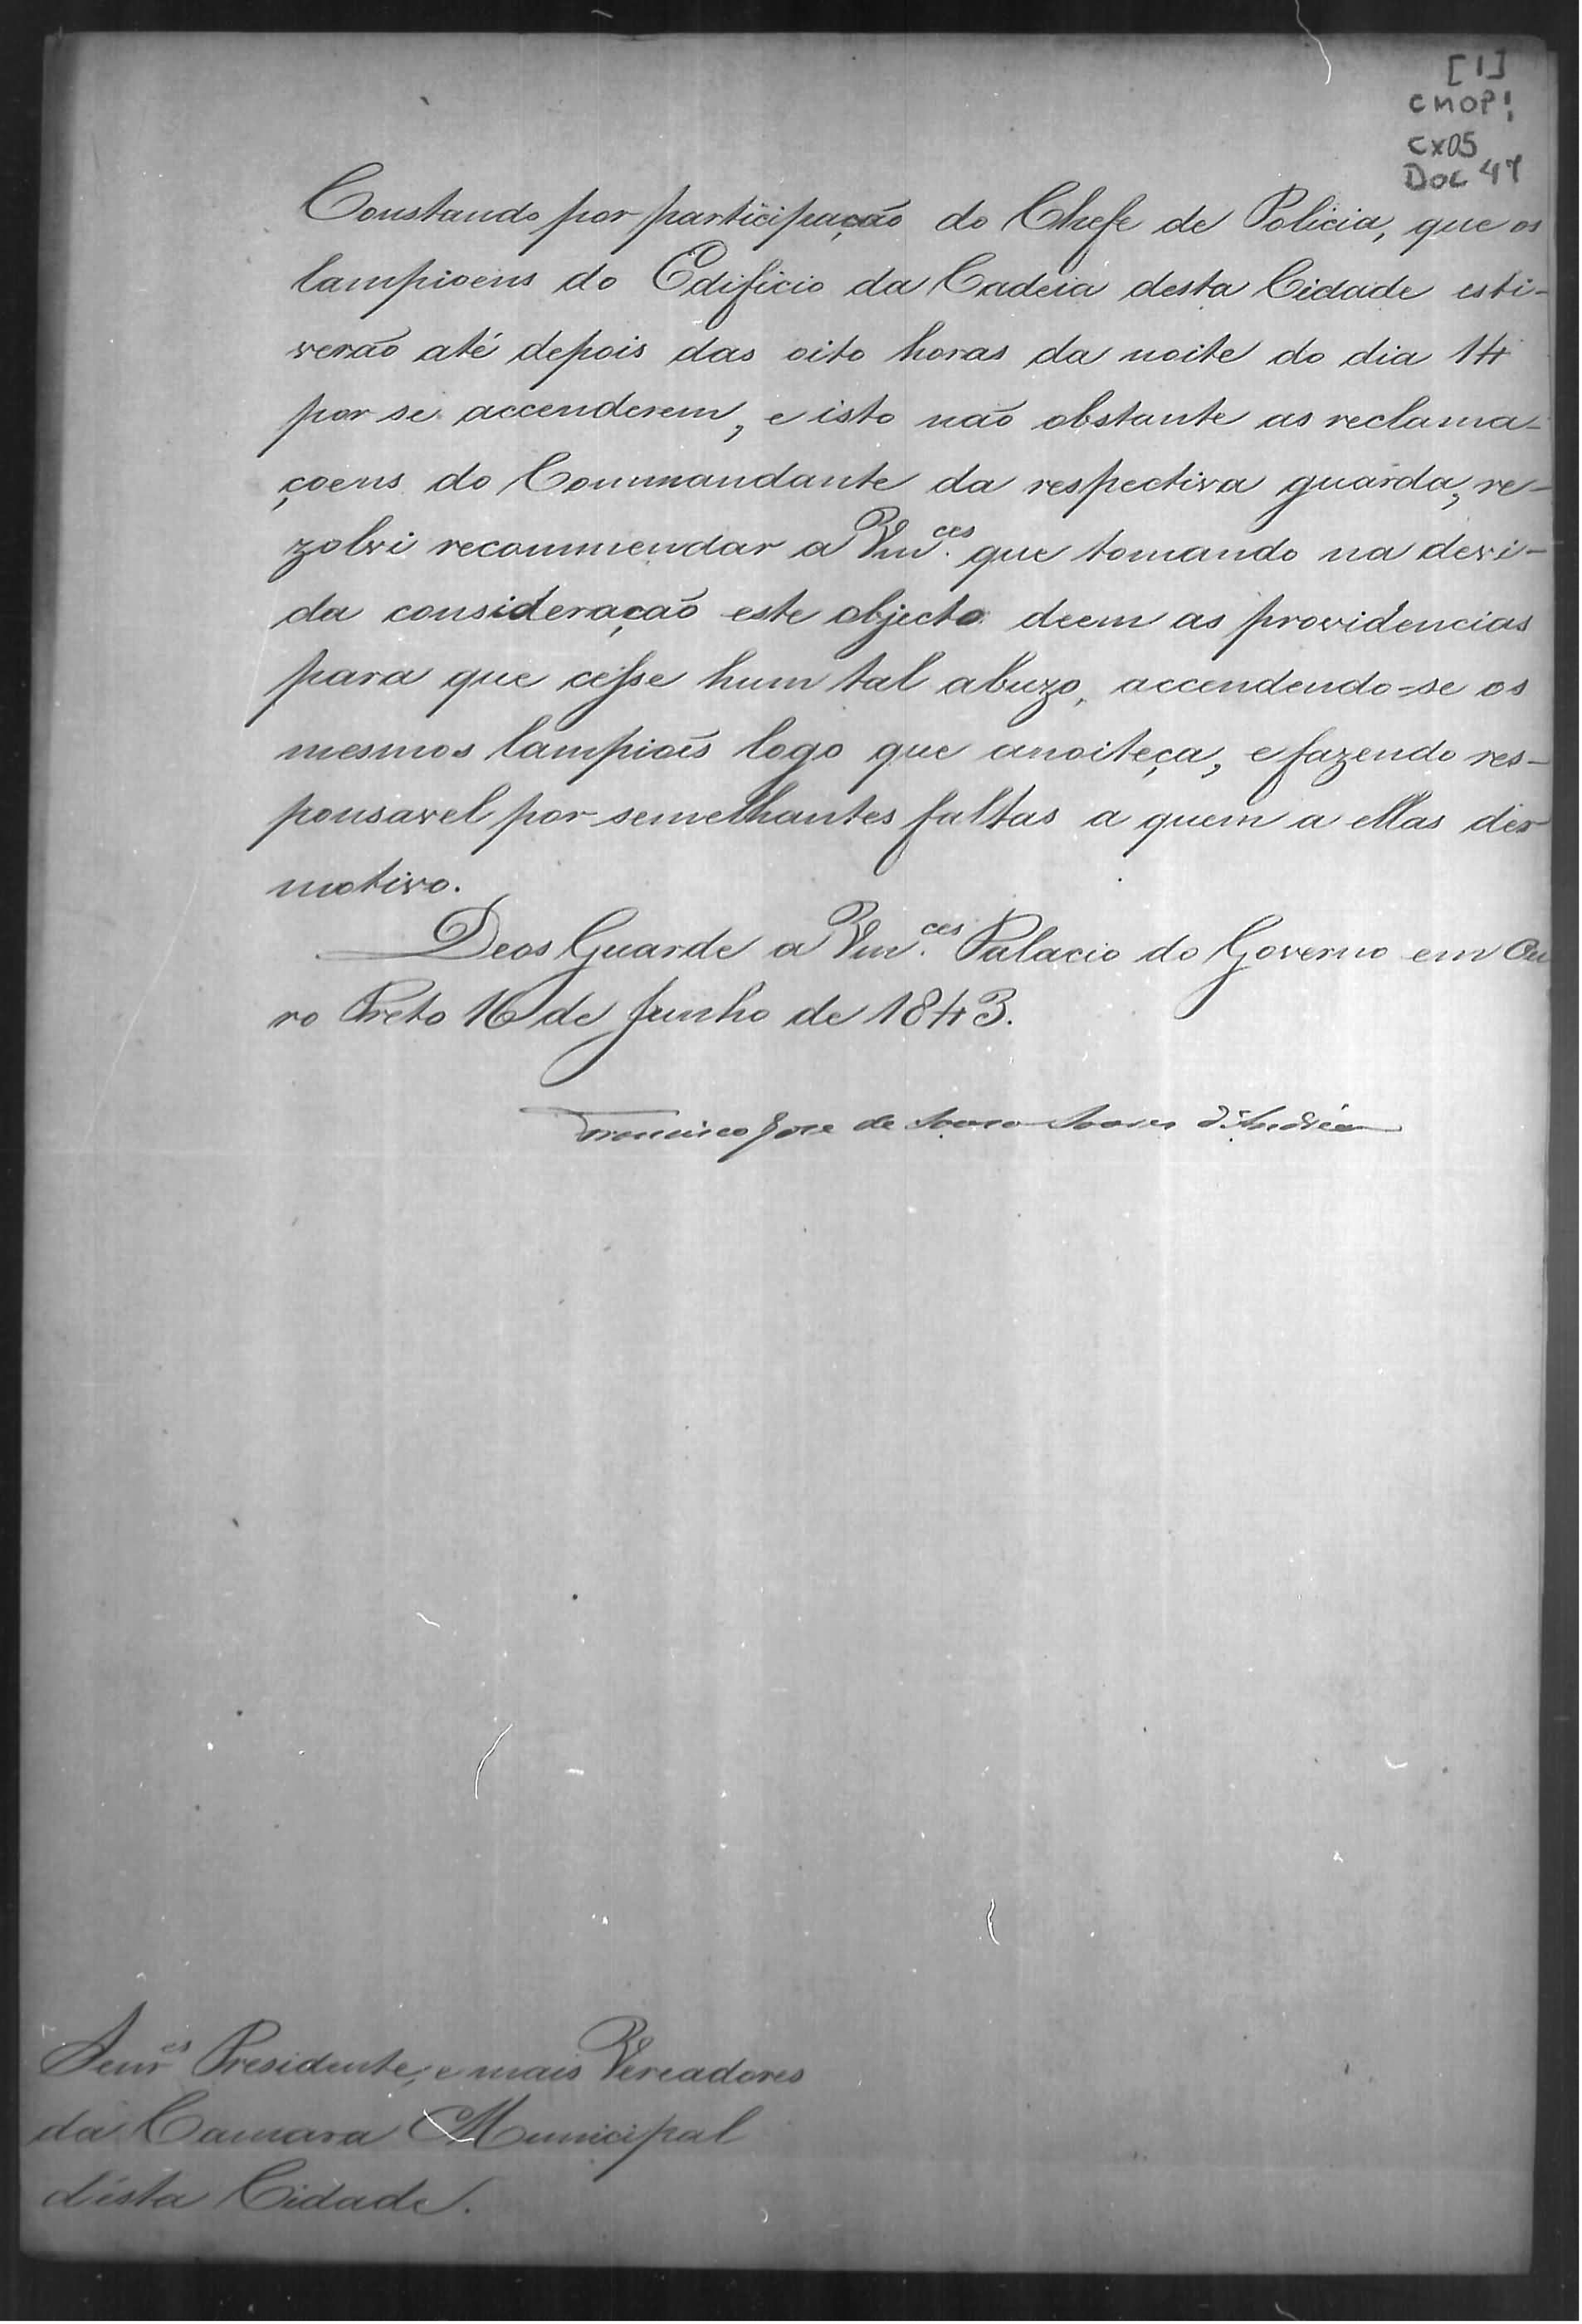 [1]
CMOP!
CX05
DOC 47
Constando por participação do Chefe de Policia, que os
lampioens do Edificio da Cadeia desta Cidade esti-
verão até depois das oito horas da noite do dia 14
por se accenderem, e isto não obstante as reclama-
çoens do Commandante da respectiva guarda, re-
zolvi recommendar a Vm.ces que tomando na devi-
da consideração este objecto deem as providencias
para que cesse hum tal abuzo, accendendo-se os
mesmos lampiões logo que anoiteça, e fazendo res-
ponsavel por semelhantes faltas a quem a ellas der
motivo.
Deos Guarde a Vm.ces Palacio do Governo em Ou
ro Preto 16 de Junho de 1843.
Francisco José de Souza Soares d'Andréa
Senr.es Presidente, e mais Vereadores
da Camara Municipal
d'esta Cidade.